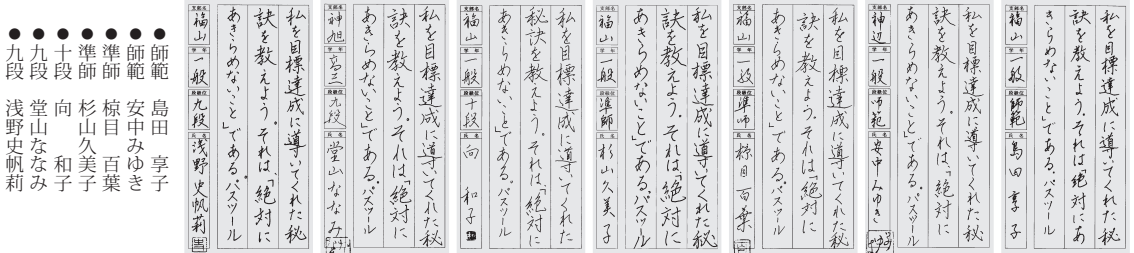 私を目標達成に導いてくれた秘
訣を教えよう。それは、「絶対にあ
きらめないこと」である。パスツール
支部名 福山 学年 一般 段級位 師範 氏名 島田享子
私を目標達成に導いてくれた秘
訣を教えよう。それは、「絶対に
あきらめないこと」である。パスツール
支部名 神辺 学年 一般 段級位 師範 氏名 安中みゆき
私を目標達成に導いてくれた秘
訣を教えよう。それは、「絶対に
あきらめないこと」である。パスツール
支部名 福山 学年 一般 段級位 準師 氏名 椋目百葉
私を目標達成に導いてくれた秘
訣を教えよう。それは、「絶対に
あきらめないこと」である。パスツール
支部名 福山 学年 一般 段級位 準師 氏名 杉山久美子
私を目標達成に導いてくれた
秘訣を教えよう。それは、「絶対に
あきらめないこと」である。パスツール
支部名 福山 学年 一般 段級位 十段 氏名 向 和子
私を目標達成に導いてくれた秘
訣を教えよう。それは、「絶対に
あきらめないこと」である。パスツール
支部名 神旭 学年 高三 段級位 九段 氏名 堂山ななみ
私を目標達成に導いてくれた秘
訣を教えよう。それは、「絶対に
あきらめないこと」である。パスツール
支部名 福山 学年 一般 段級位 九段 氏名 浅野史帆莉
●師範 島田 享子
●師範 安中みゆき
●準師 椋目 百葉
●準師 杉山久美子
●十段 向 和子
●九段 堂山ななみ
●九段 浅野史帆莉